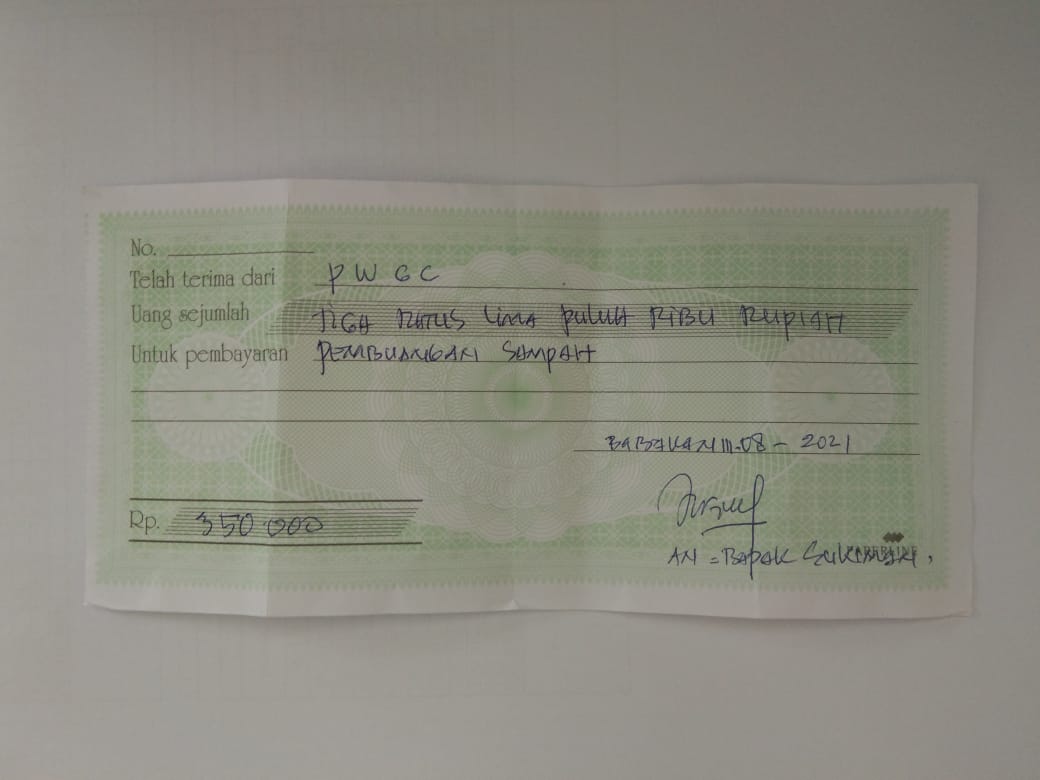 No.
Telah terima dari PWGC
Uang sejumlah TIGA RATUS LIMA PULUH RIBU RUPIAH
Untuk pembayaran PEMBUANGAN SAMPAH
BABAKAN 111-08-2021
Rp. 350 000
AN = BAPAK SUKIMAN.
PAPERLINE